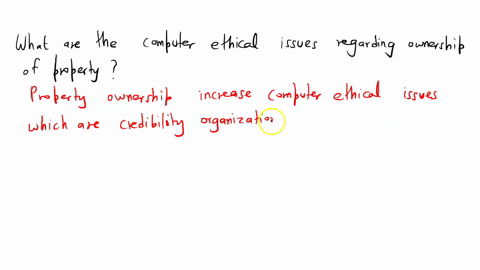 What are the computer ethical issues regarding ownership
of property ?
Property ownership increase computer ethical issues
which are credibility organization